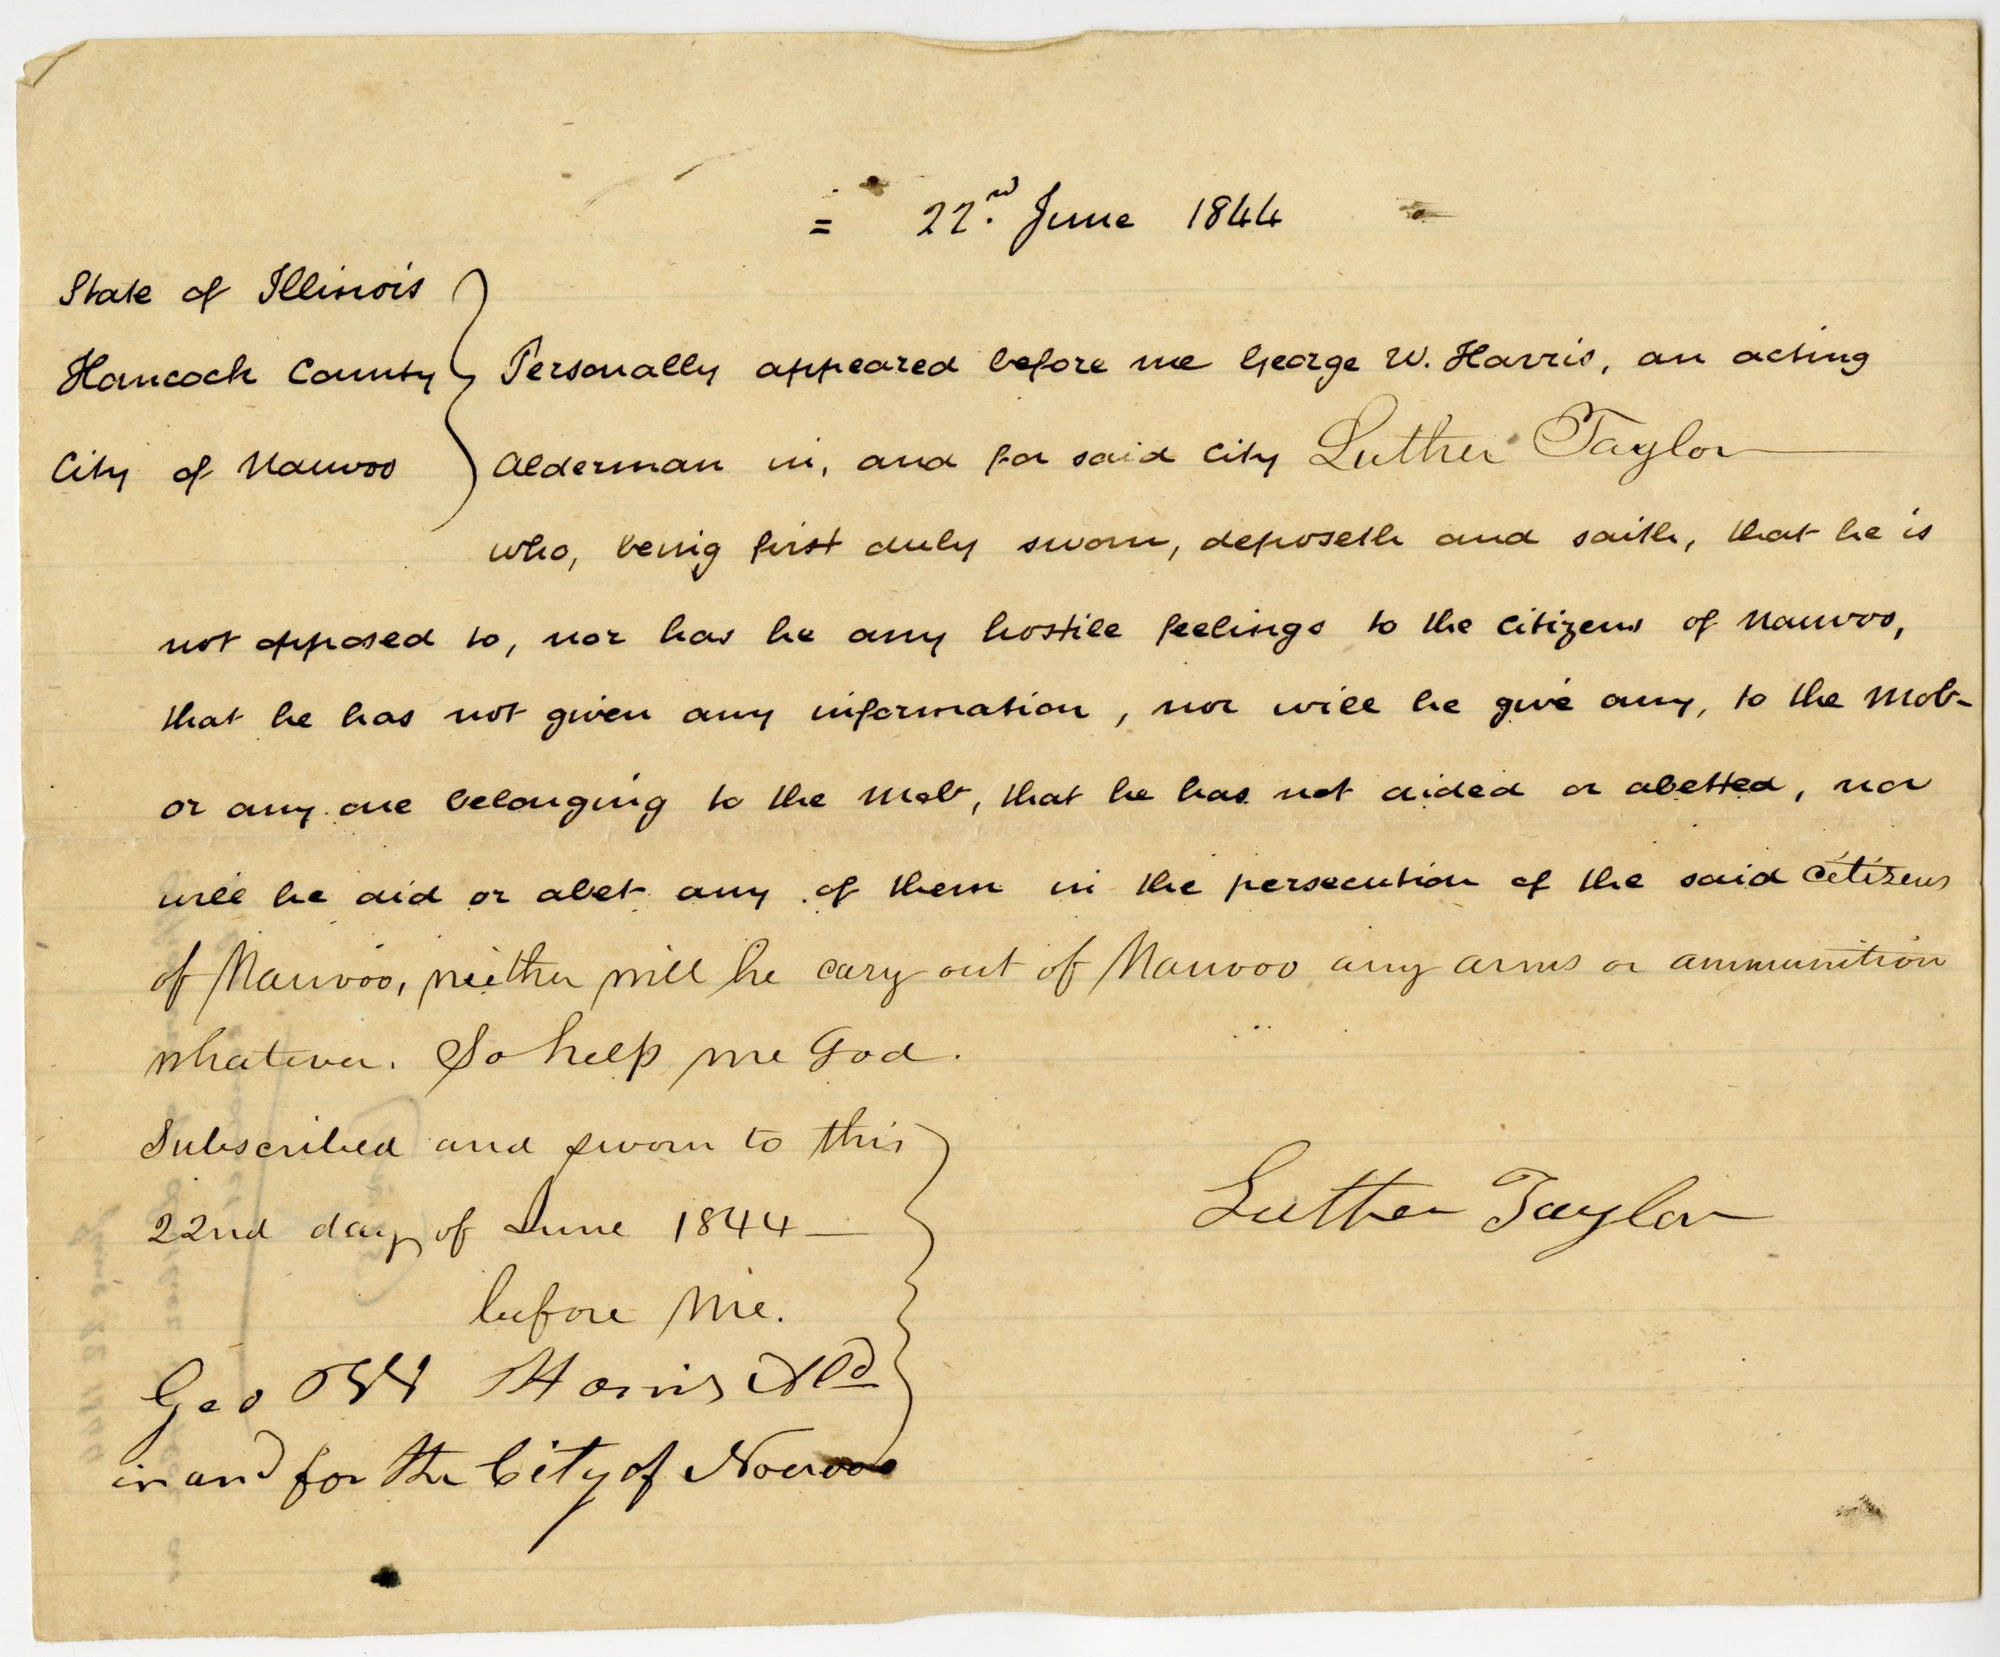 = 22.nd June 1844
State of Illinois
Hancock County
City of Nauvoo
Personally appeared before me George W. Harris, an acting
Alderman in, and for said City Luther Taylor
who, being first duly sworn, deposeth and saith, that he is
not opposed to, nor has he any hostile feelings to the citizens of Nauvoo,
that he has not given any information, nor will he give any, to the Mob-
or any one belonging to the Mob, that he has not aided or abetted, nor
will he aid or abet any of them in the persecution of the said citizens
of Nauvoo, neither will he cary out of Nauvoo any arms or ammunition
whatever. So help me God.
Subscribed and sworn to this
22nd day of June 1844 —
before me.
Luther Taylor
Geo W Harris Ald
in and for the City of Nouvoo